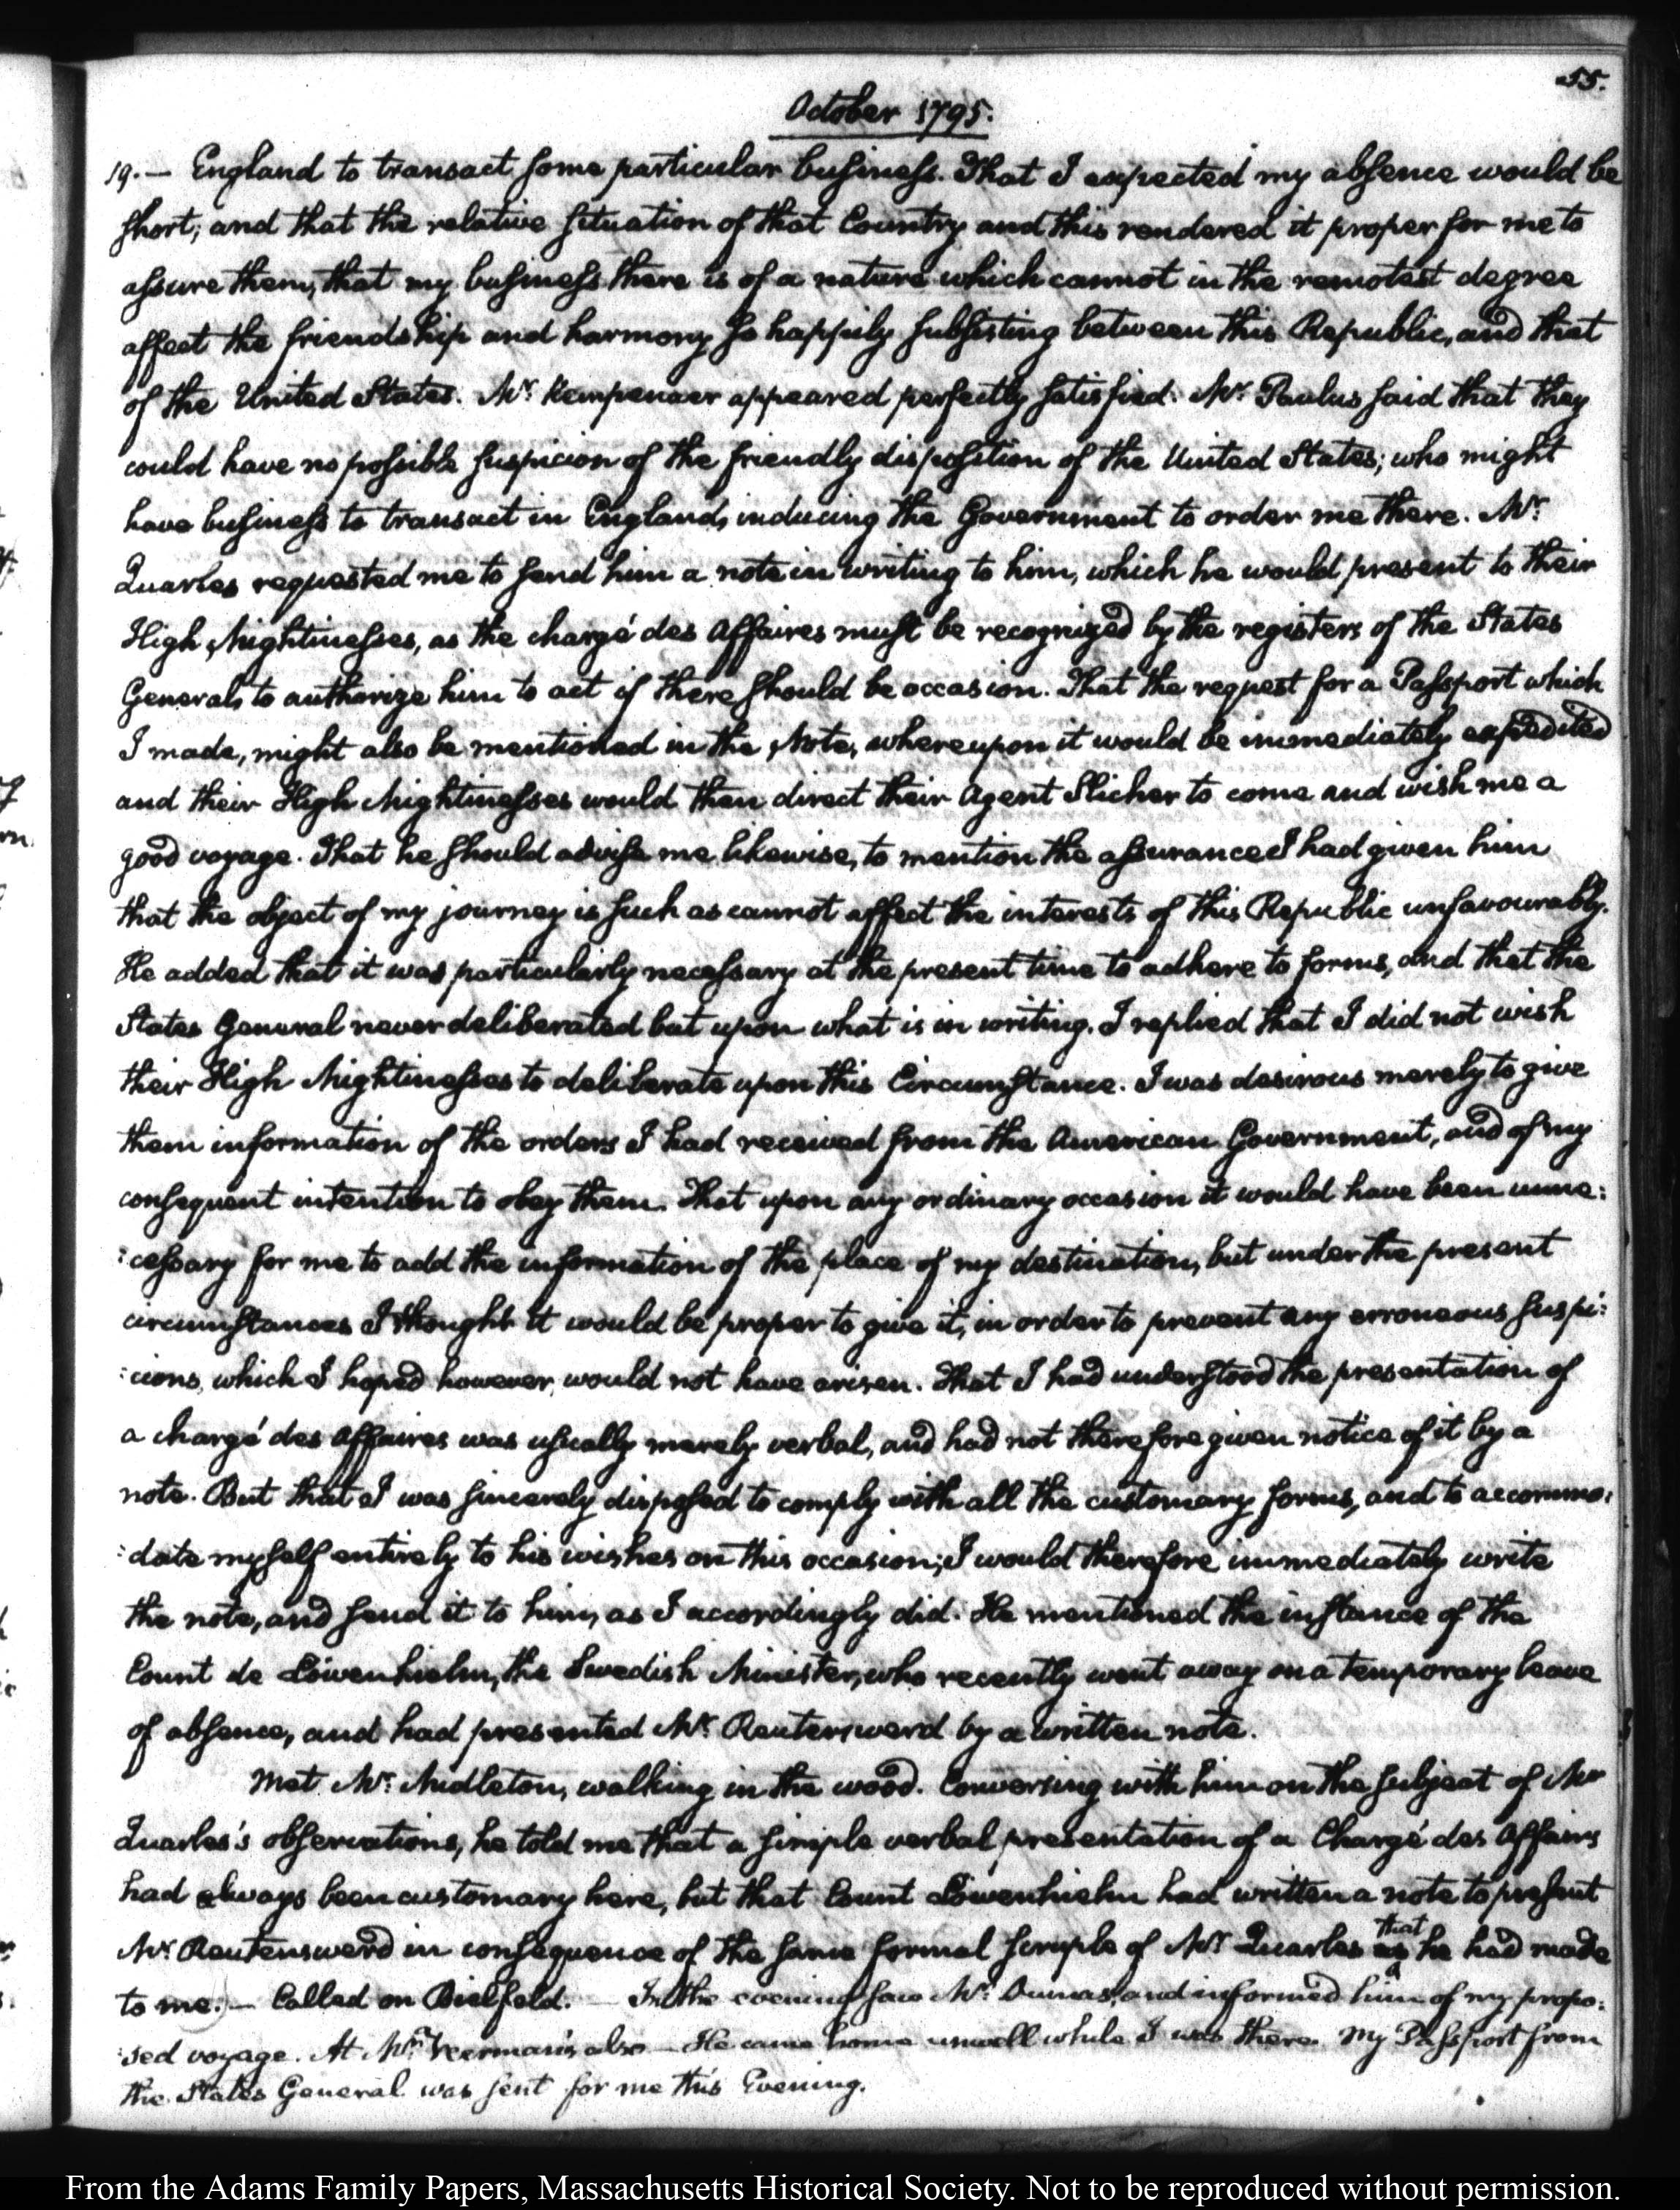 55.
October 1795.
19.— England to transact some particular business. That I expected my absence would be
short, and that the relative situation of that Country and this rendered it proper for me to
assure them, that my business there is of a nature which cannot in the remotest degree
affect the friendship and harmony so happily subsisting between this Republic, and that
of the United States. Mr. Kempenaer appeared perfectly satisfied. Mr. Paulus said that they
could have no possible suspicion of the friendly disposition of the United States; who might
have business to transact in England, inducing the Government to order me there. Mr.
Quarles requested me to send him a note in writing to him, which he would present to their
High Mightinesses, as the chargé des Affaires must be recognized by the registers of the States
General, to authorize him to act if there should be occasion. That the request for a Passport which
I made, might also be mentioned in the Note, whereupon it would be immediately expedited
and their High Mightinesses would then direct their Agent Slicher to come and wish me a
good voyage. That he should advise me likewise, to mention the assurance I had given him
that the object of my journey is such as cannot affect the interests of this Republic unfavourably.
He added that it was particularly necessary at the present time to adhere to forms, and that the
States General never deliberated but upon what is in writing. I replied that I did not wish
their High Mightinesses to deliberate upon this Circumstance. I was desirous merely to give
them information of the orders I had received from the American Government, and of my
consequent intention to obey them. That upon any ordinary occasion it would have been unne:
:cessary for me to add the information of the place of my destination, but under the present
circumstances I thought it would be proper to give it, in order to prevent any erroneous suspi:
:cions, which I hoped however, would not have arisen. That I had understood the presentation of
a chargé des Affaires was usually merely verbal, and had not therefore given notice of it by a
note. But that I was sincerely disposed to comply with all the customary forms, and to accommo:
:date myself entirely to his wishes on this occasion; I would therefore immediately write
the note, and send it to him, as I accordingly did. He mentioned the instance of the
Count de Löwenhielm, the Swedish Minister, who recently went away on a temporary leave
of absence, and had presented Mr. Reutersward by a written note.
Met Mr. Midleton, walking in the wood. Conversing with him on the subject of Mr
Quarles's observations, he told me that a simple verbal presentation of a Chargé des Affairs
had always been customary here, but that Count Löwenhielm had written a note to present
Mr. Reutersward in consequence of the same formal scruple of Mr. Quarles as that he had made
to me.— Called on Bielfeld. — In the evening saw Mr. Dumas, and informed him of my propo:
:sed voyage. At Mr. Veerman's also — He came home unwell while I was there. My Passport from
the States General was sent for me this Evening.
From the Adams Family Papers, Massachusetts Historical Society. Not to be reproduced without permission.